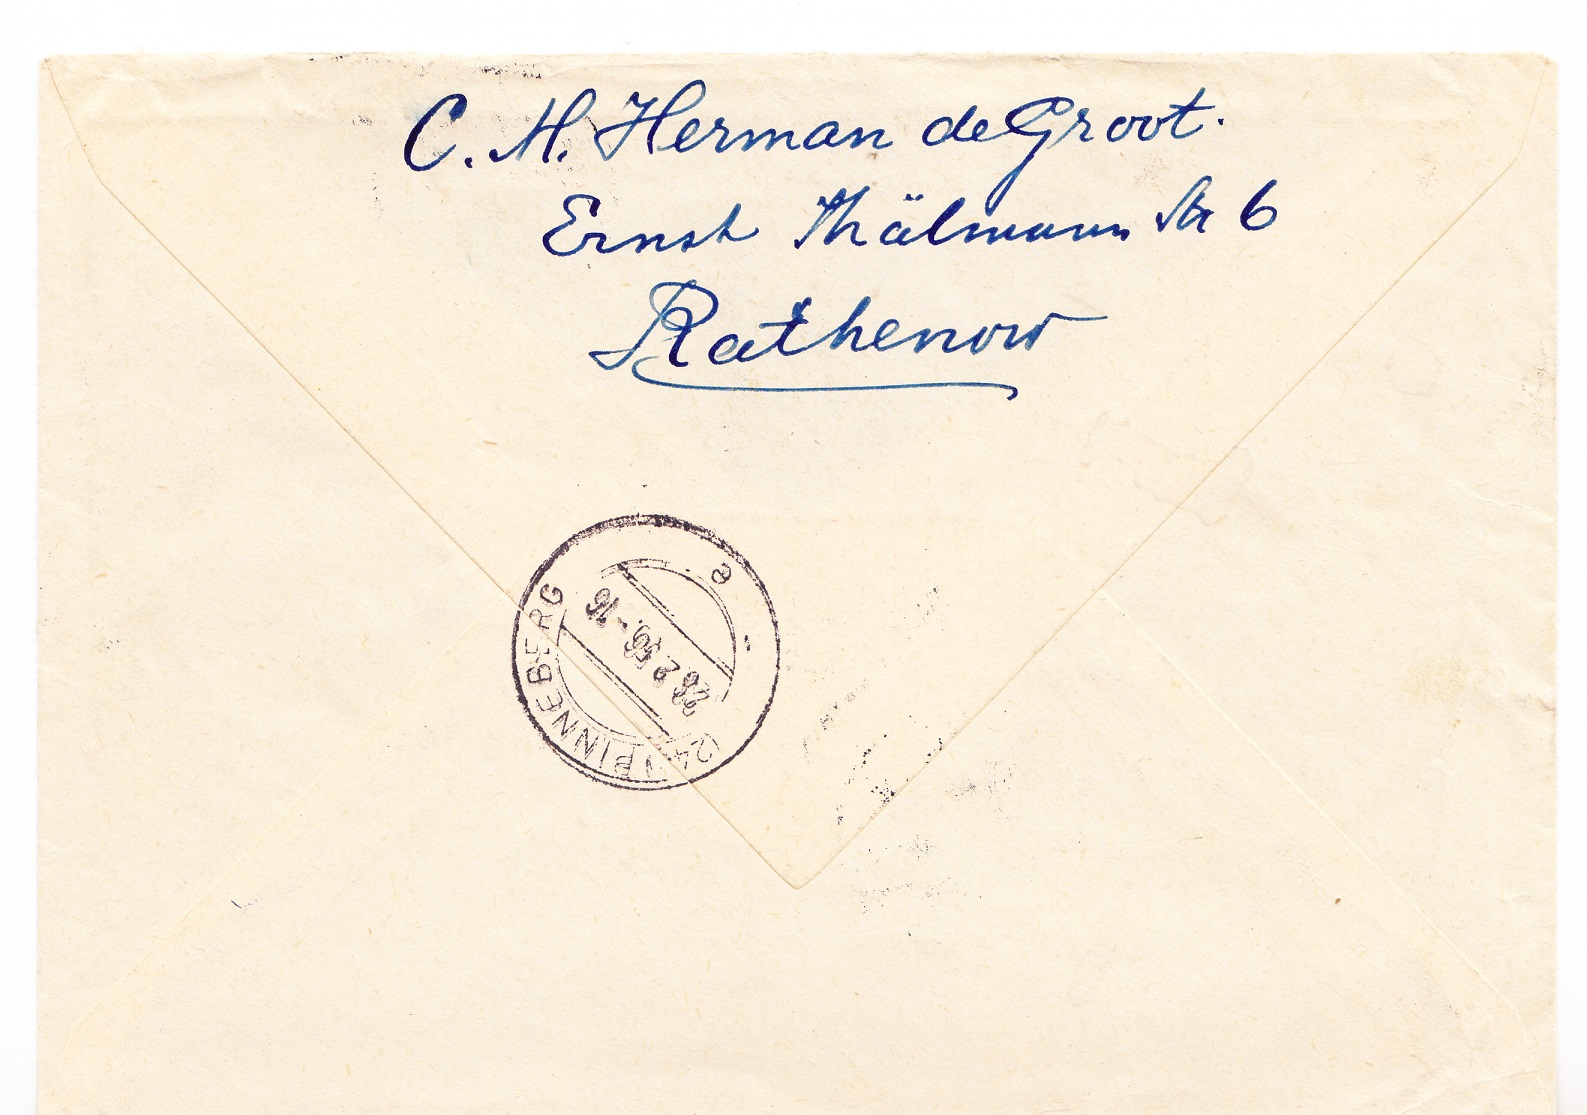 C. M. Herman de Groot.
Ernst Thälmann Str 6
Rathenow
(24) PINNEBERG
28.2.56.-16
e